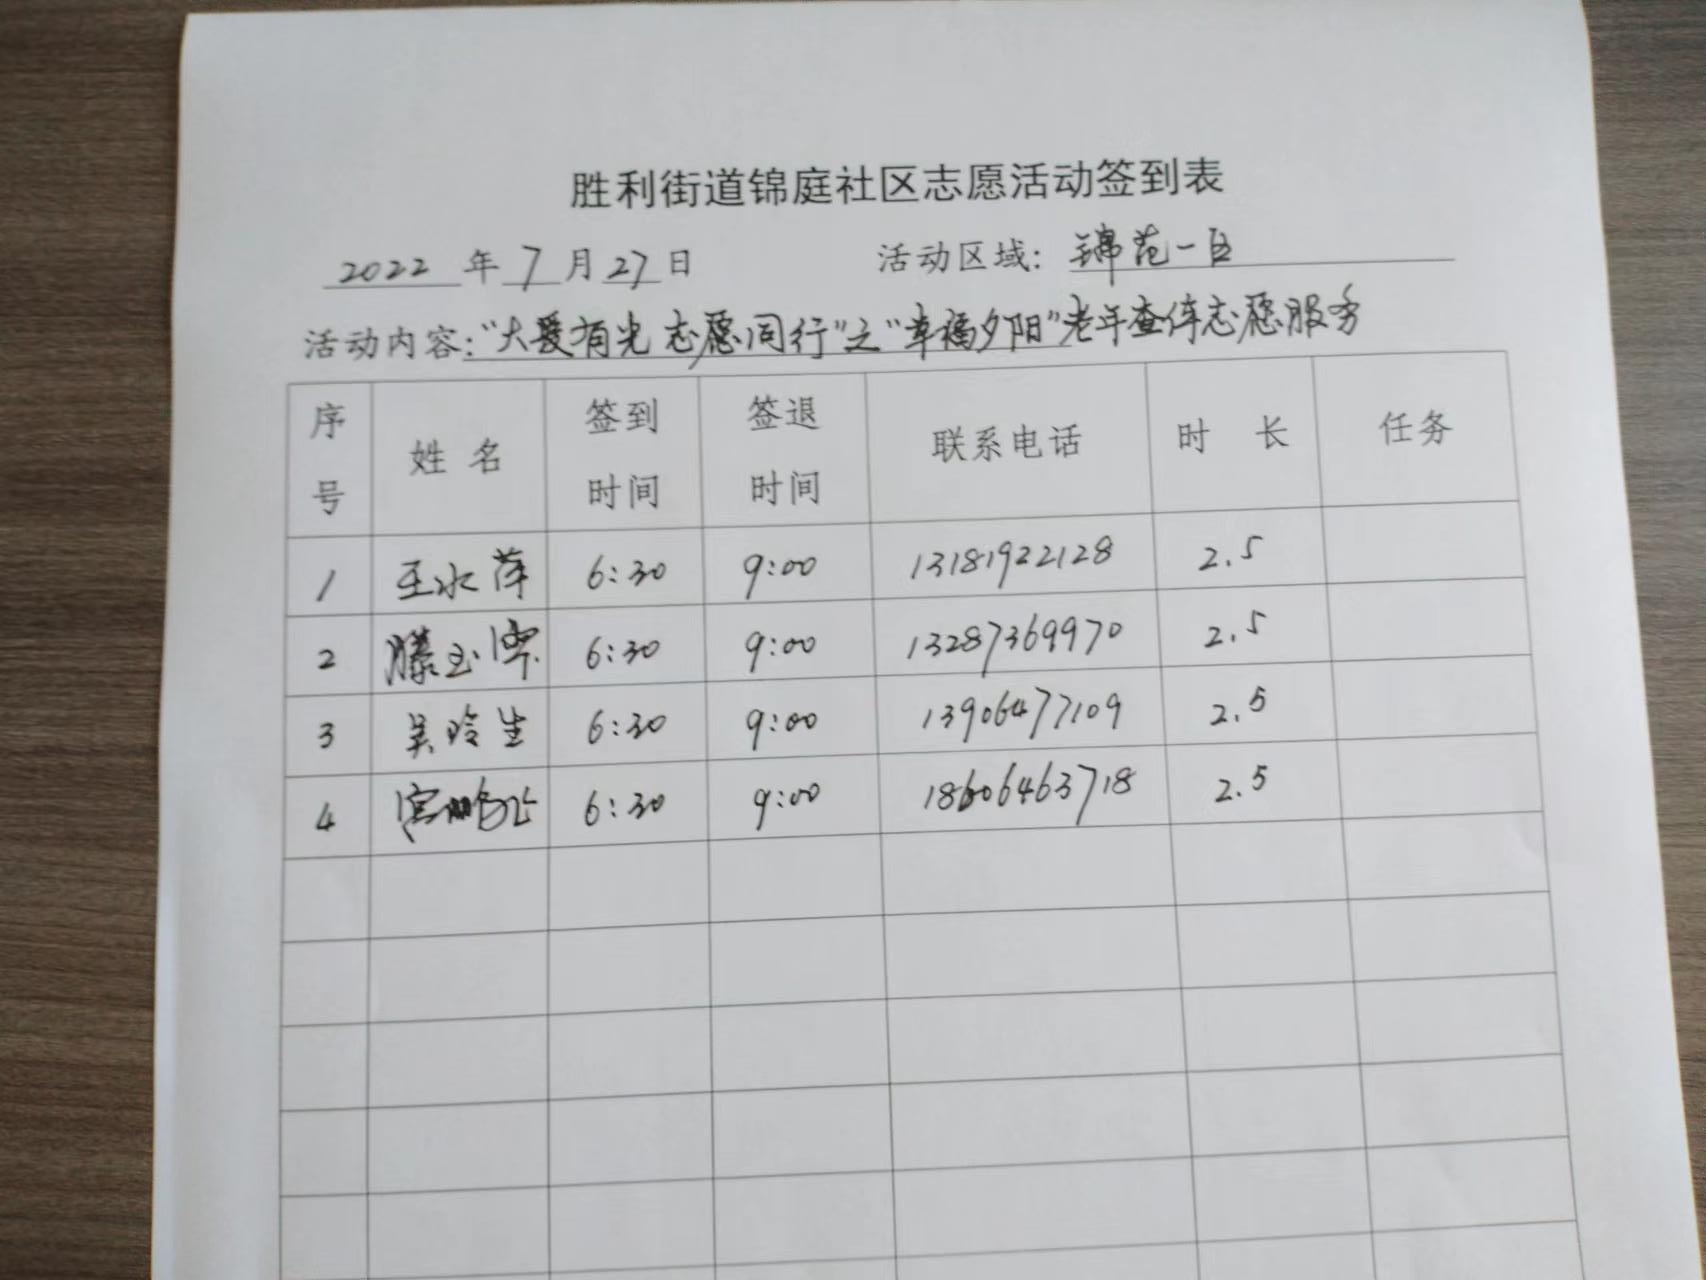 胜利街道锦庭社区志愿活动签到表
2022 年 7 月 27 日 活动区域: 锦苑一区
活动内容:"大爱有光 志愿同行"之"幸福夕阳"老年查体志愿服务
序号 姓名 签到时间 签退时间 联系电话 时长 任务
1 王水萍 6:30 9:00 13181922128 2.5
2 滕玉 6:30 9:00 13287369970 2.5
3 吴玲生 6:30 9:00 13906477109 2.5
4 宫鹏 6:30 9:00 18606463718 2.5